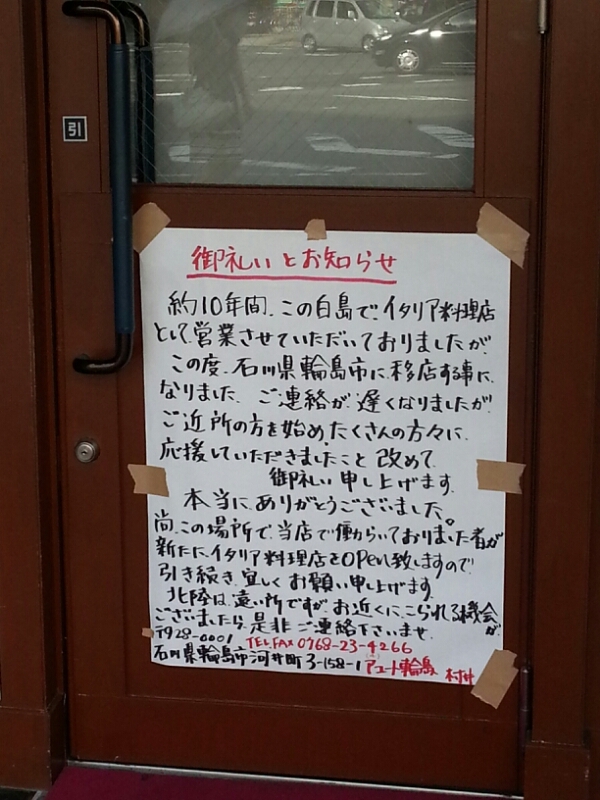 引
御礼いとお知らせ
約10年間、この白島で、イタリア料理店
として営業させていただいておりましたが
この度、石川県輪島市に移店する事に
なりました。ご連絡が遅くなりましたが
ご近所の方を始め、たくさんの方々に
応援していただきましたこと改めて
御礼い申し上げます。
本当にありがとうございました。
尚、この場所で当店で働らいておりました者が
新たにイタリア料理店をOPen致しますので
引き続き、宜しくお願い申し上げます。
北陸は遠い所ですが、お近くにこられる機会が
ございましたら、是非ご連絡下さいませ。
〒928-0001 TEL,FAX 0768-23-4266
石川県輪島市河井町3-158-1 アユート輪島